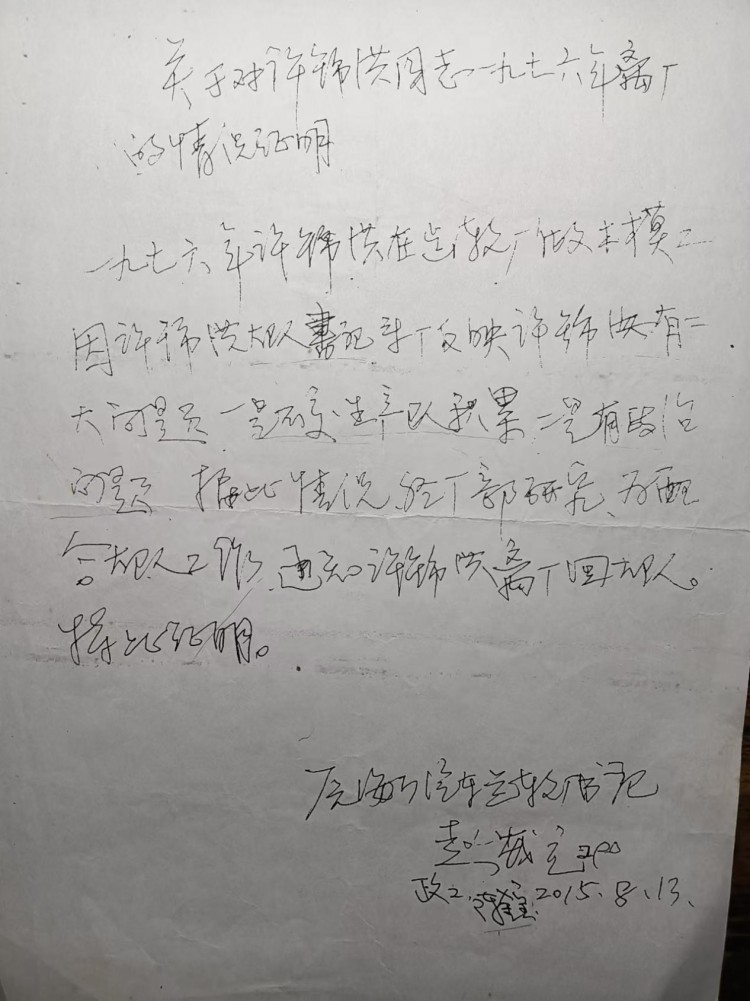 关于对许锦洪同志一九七六年离厂
的情况证明
一九七六年许锦洪在总装厂做木模工
因许锦洪大队书记来厂反映许锦洪有二
大问题 一是不交生产队积累 二是有政治
问题 据此情况 经厂部研究、为配
合大队工作 通知许锦洪离厂回大队。
特此证明。
汽车总装厂书记
政工 2015.8.13.